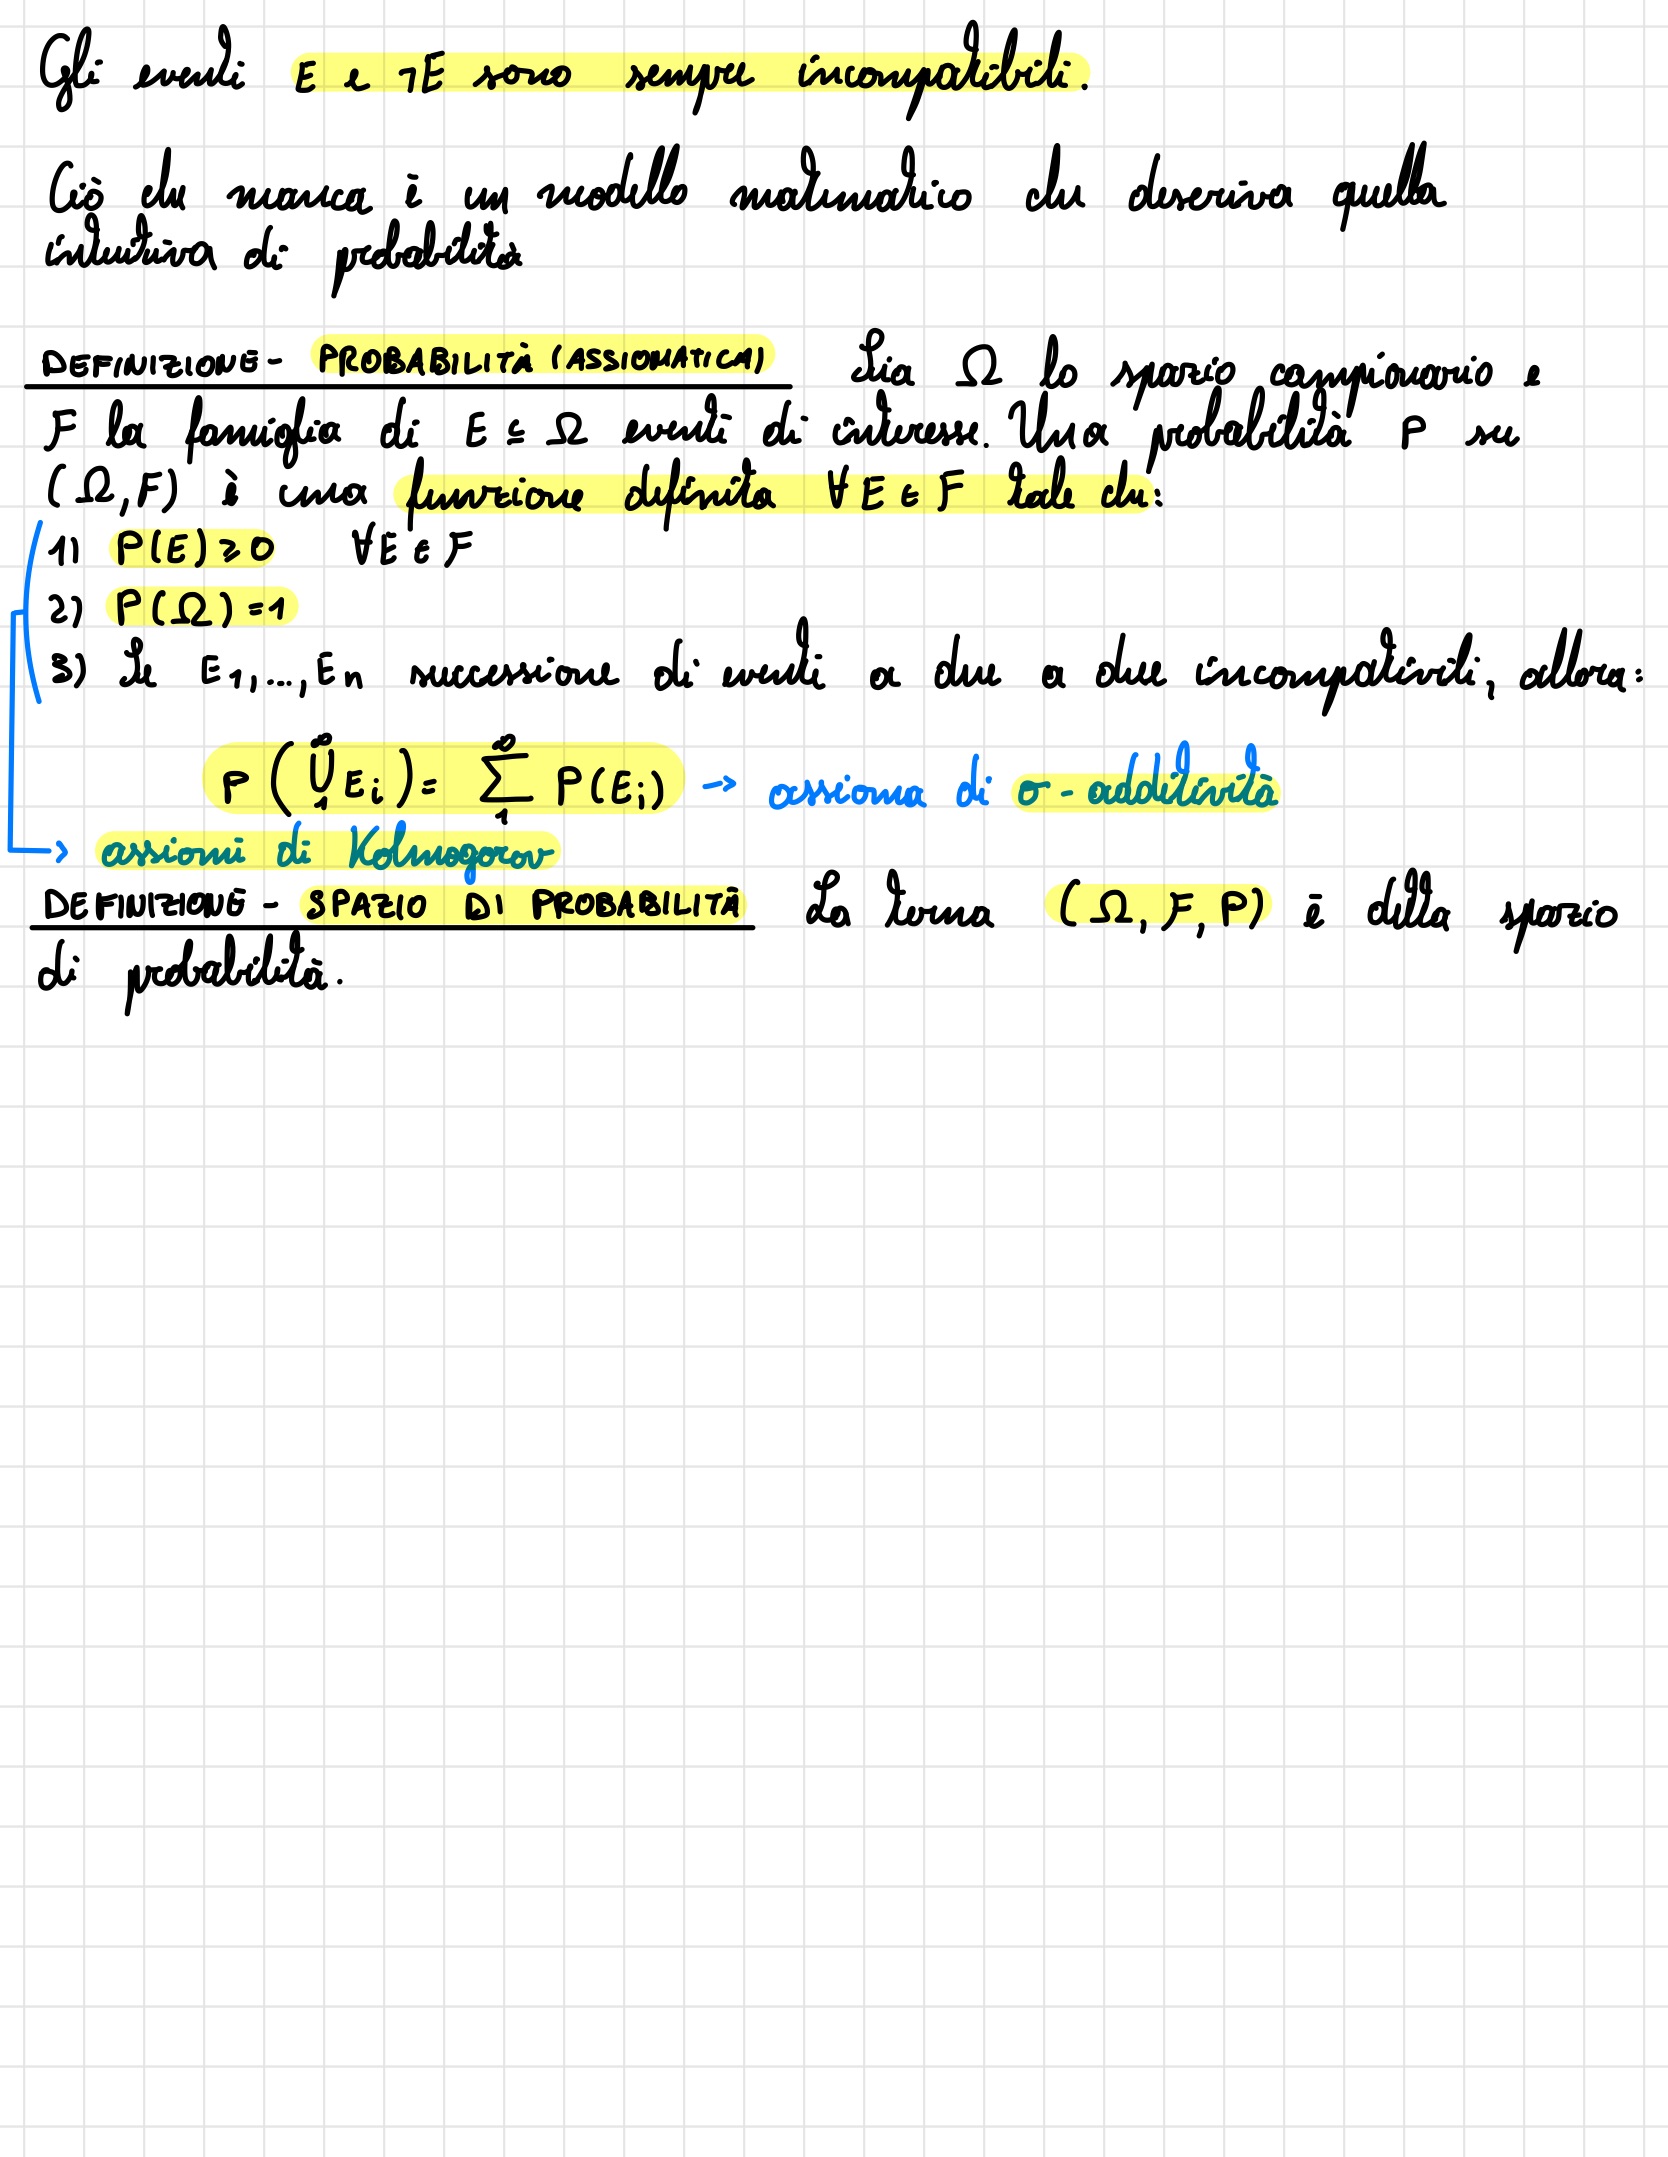 Gli eventi E e ¬E sono sempre incompatibili.
Ciò che manca è un modello matematico che descriva quella
intuitiva di probabilità
DEFINIZIONE - PROBABILITÀ (ASSIOMATICA) Sia Ω lo spazio campionario e
F la famiglia di E ⊆ Ω eventi di interesse. Una probabilità P su
(Ω, F) è una funzione definita ∀ E ∈ F tale che:
1) P(E) ≥ 0 ∀E ∈ F
2) P(Ω) = 1
3) Se E₁, ..., Eₙ successione di eventi a due a due incompativili, allora:
P(⋃₁^∞ Eᵢ) = ∑₁^∞ P(Eᵢ) → assioma di σ-additività
→ assiomi di Kolmogorov
DEFINIZIONE - SPAZIO DI PROBABILITÀ La terna (Ω, F, P) è detta spazio
di probabilità.